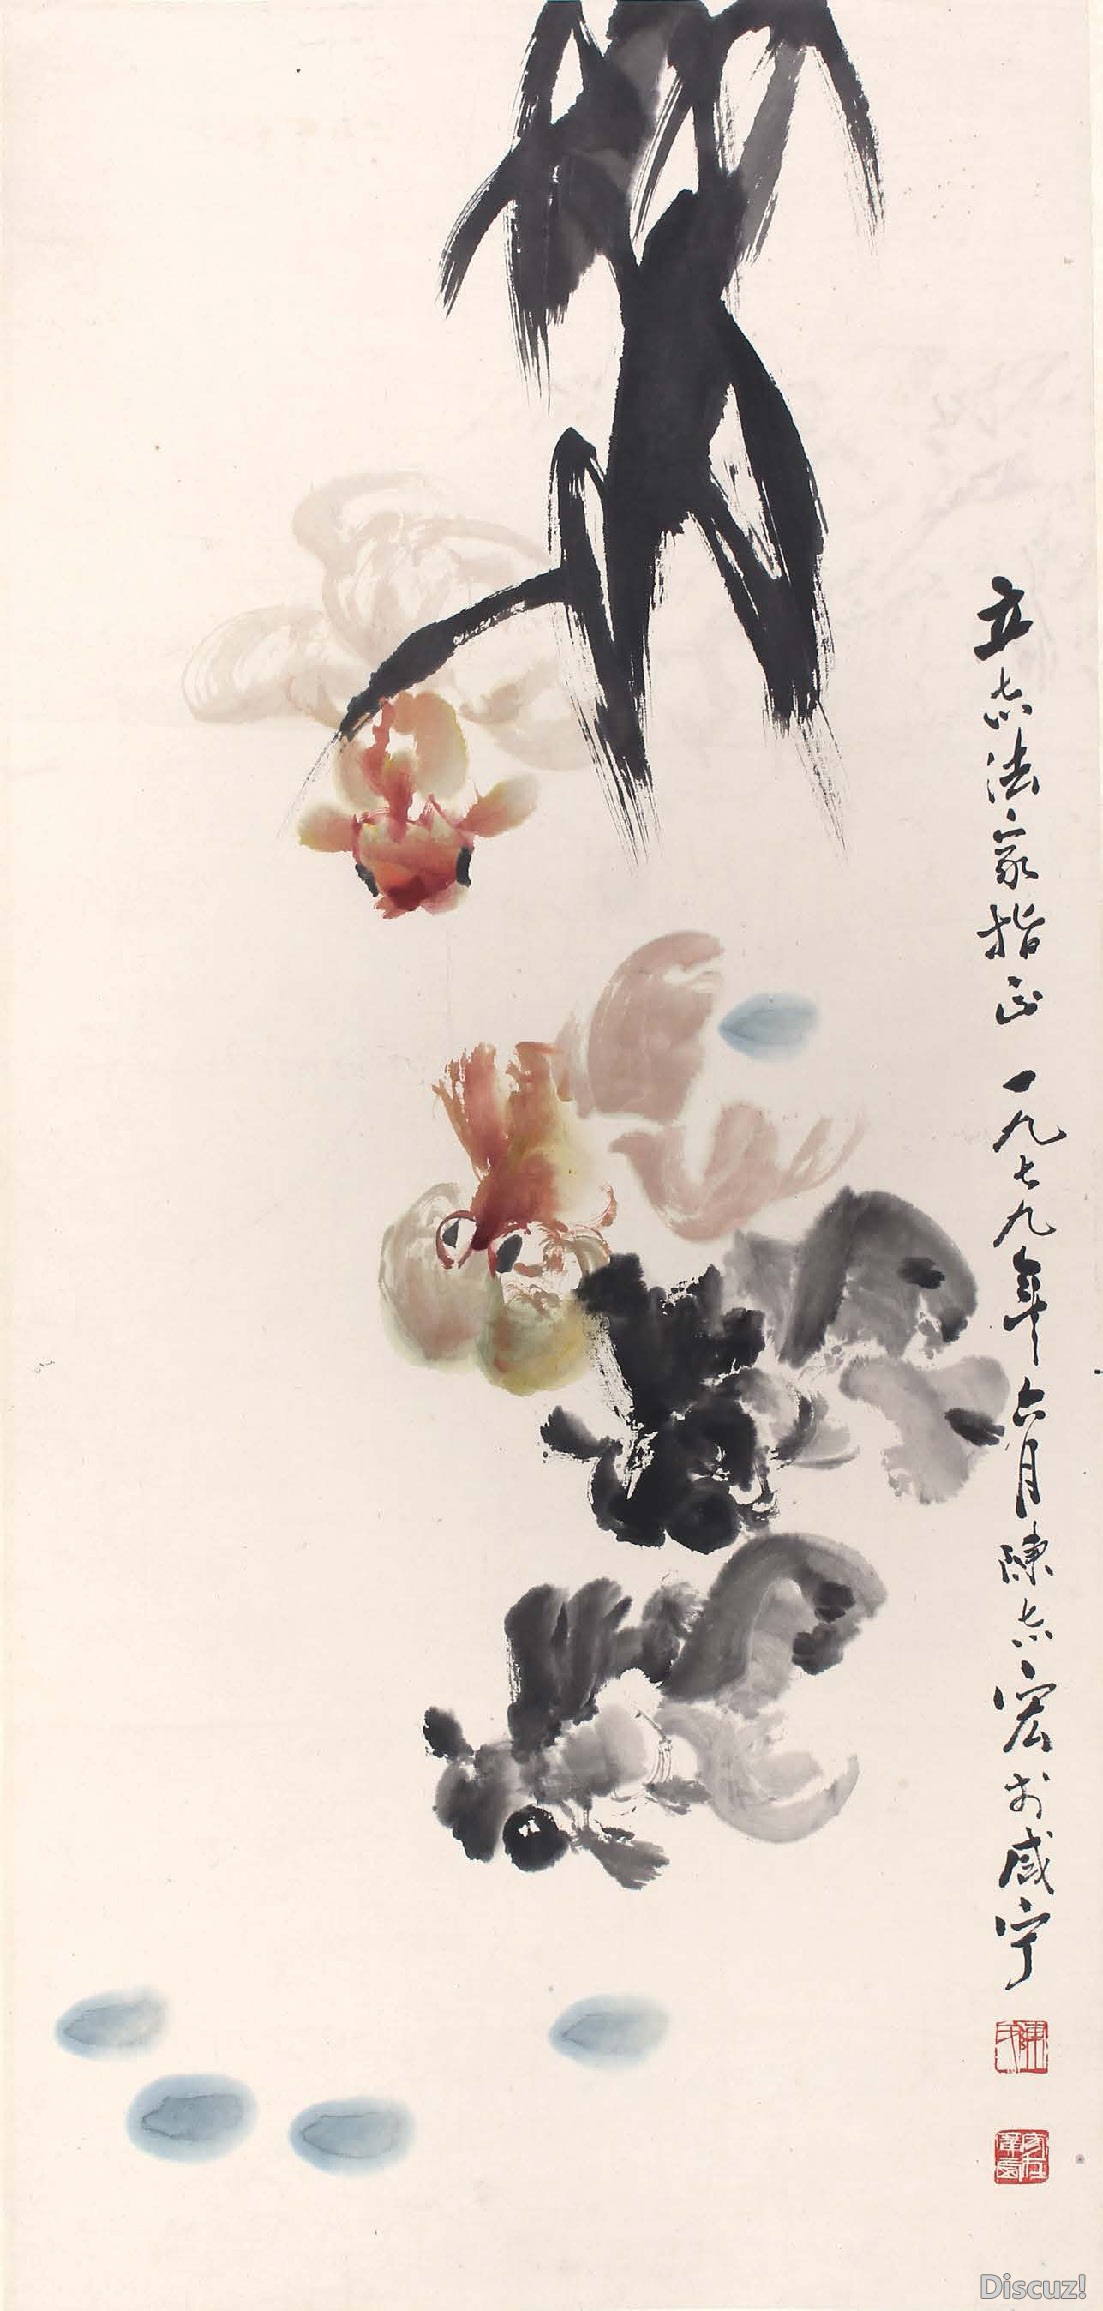 立志法家指正 一九七九年六月陈志宏于咸宁
陈
Discuz!